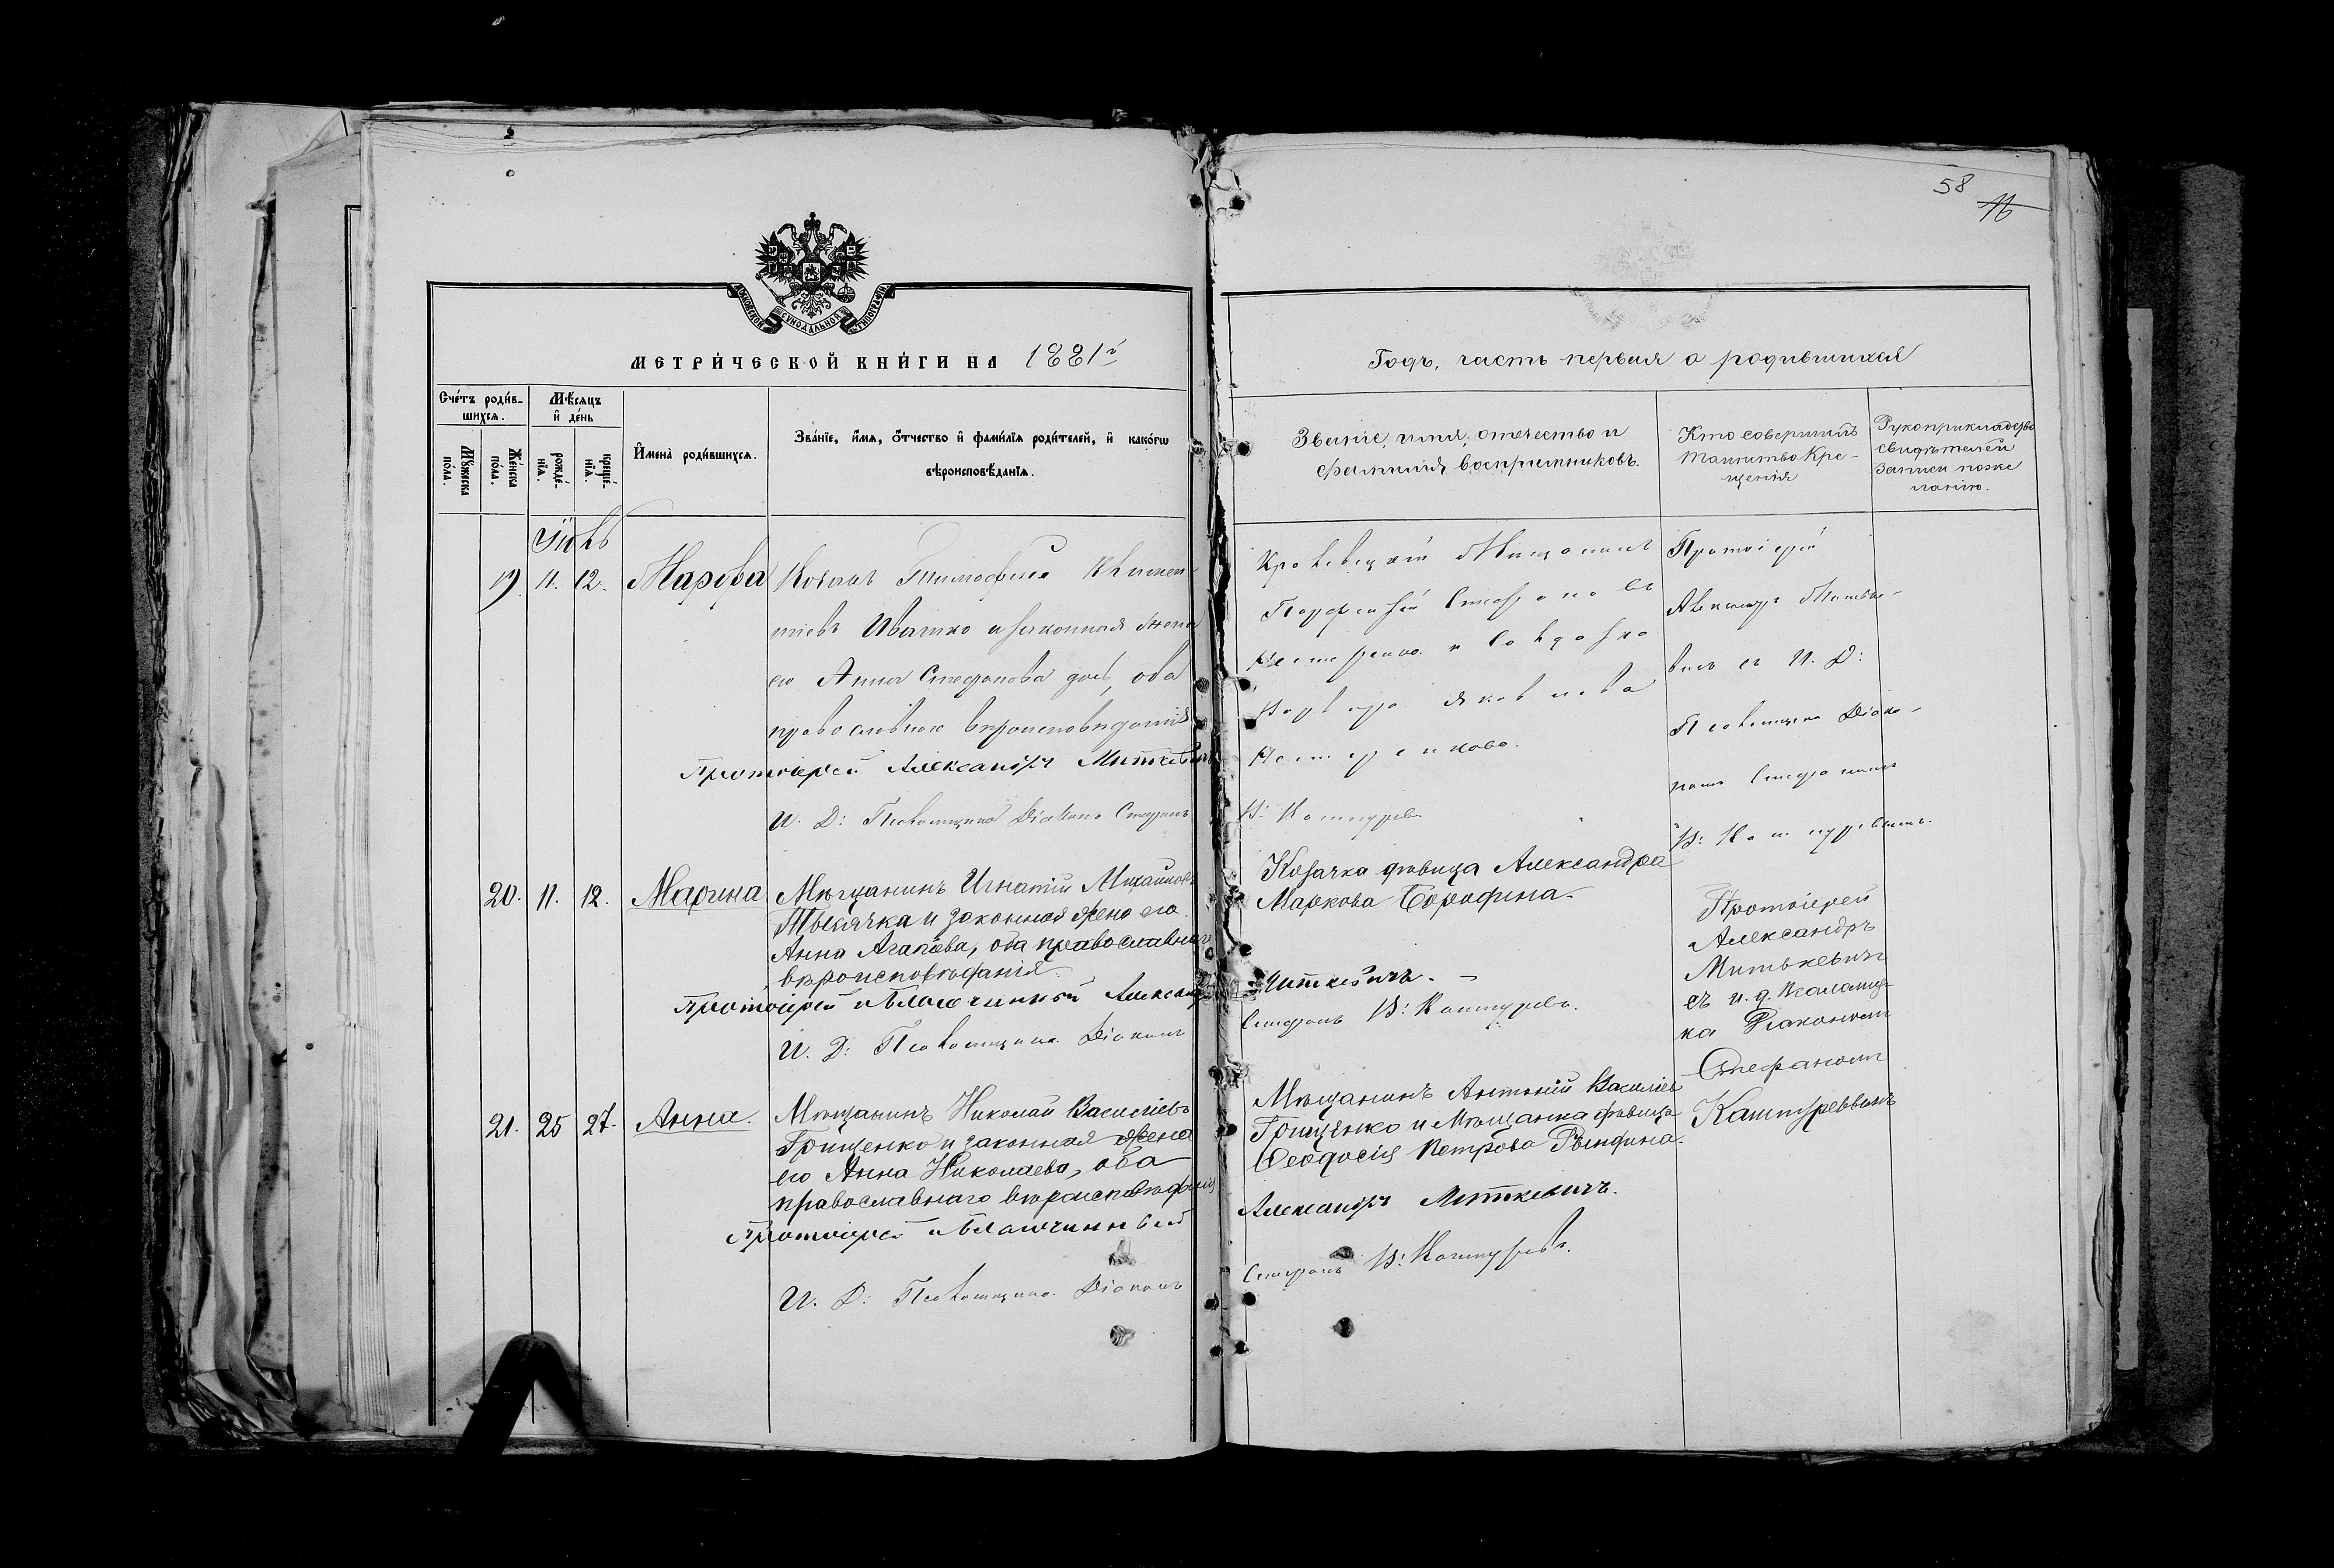 58
16
МОСКОВСКОЙ СѴНОДАЛЬНОЙ ТИПОГРАФІИ
МЕТРИ́ЧЕСКОЙ КНИ́ГИ НА 1881й
Годъ, часть первая о родившихся
Сче́тъ роди́в-
шихся.
Мꙋ́жеска по́ла.
Же́нска по́ла.
Мѣ́сяцъ и҆ де́нь
рожде́-
нїя.
креще́-
нїя.
И҆мена̀ роди́вшихся.
Зва́нїе, и҆́мя, ѻ҆́тчество и҆ фами́лїя роди́телей, и҆ како́гѡ
вѣроисповѣ́данїя.
Званіе, имя, отчество и
фамилія воспріемниковъ.
Кто совершилъ
таинство Кре-
щенія
Рукоприкладство
свидѣтелей
записи по же
ланію.
Іюль
19. 11. 12. Марѳа
Козакъ Тимофей Климен-
тіевъ Ивашко и законная жена
его Анна Стефанова дочь, оба
православнаго вѣроисповѣданія
Протоіерей Александръ Миткевичъ
И. Д: Псаломщика Діаконъ Стефанъ
Кролевецкій Мищанинъ
Порфирій Стефановъ
Нестеренко и
Яковлева
Нестеренкова.
В: Каштуревъ
Протоіерей
Александръ Митке-
вичъ съ И. Д:
Псаломщика Діако-
номъ Стефаномъ
В: Каштуревымъ.
20. 11. 12. Марина
Мѣщанинъ Игнатій Михайловъ
Тысячка и законная жена его
Анна Агапіева, оба православнаго
вѣроисповѣданія.
Протоіерей и Благочинный Александръ
И. Д: Псаломщика Діаконъ
Козачка дѣвица Александра
Маркова Борофина.
Миткевичъ.
Стефанъ В: Каштуревъ.
Протоіерей
Александръ
Митькевичъ
съ и. д. Псаломщи-
ка Діакономъ
Стефаномъ
Каштуревымъ
21. 25 27. Анна.
Мѣщанинъ Николай Васильевъ
Грищенко и законная жена
его Анна Николаева, оба
православнаго вѣроисповѣданія
Протоіерей и Благочинный
И. Д: Псаломщика Діаконъ
Мѣщанинъ Антоній Василіевъ
Грищенко и Мѣщанка дѣвица
Ѳеодосія Петрова Рындина.
Александръ Миткевичъ.
Стефанъ В: Каштуревъ.